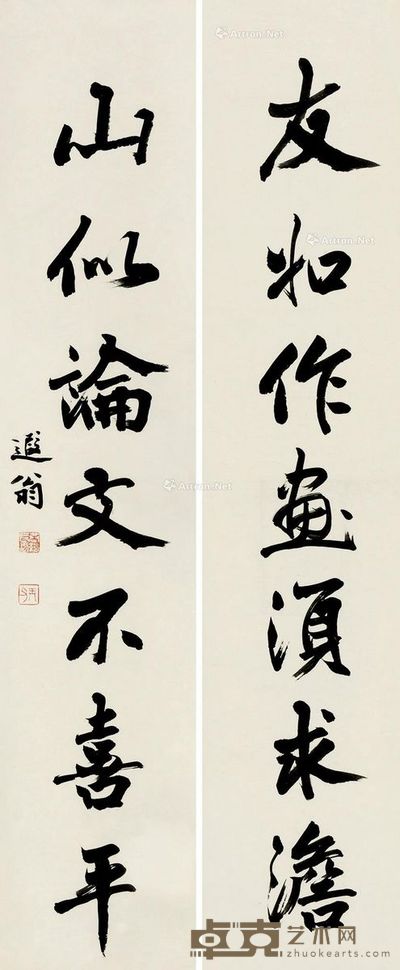 友如作畫須求澹
山似論文不喜平
遐翁
Artron.Net
Artron.Net
Artron.Net
卓克艺术网
zhuokearts.com